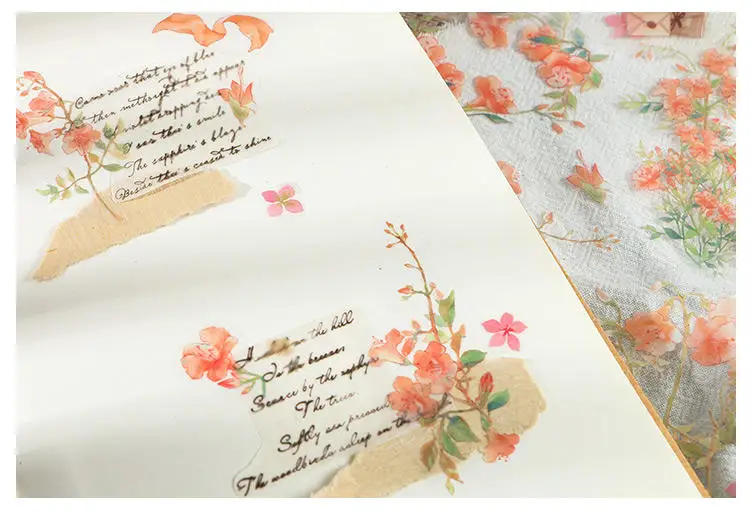 Came over that eye of blue
then methought it did appear
violet dropping dew
I saw thee smile
The sapphire's blaze
Beside thee 's ceased to shine
on the hill
In the breezes
Scarce by the zephyr
The trees.
Softly sea pressed
The woodbirds asleep on the